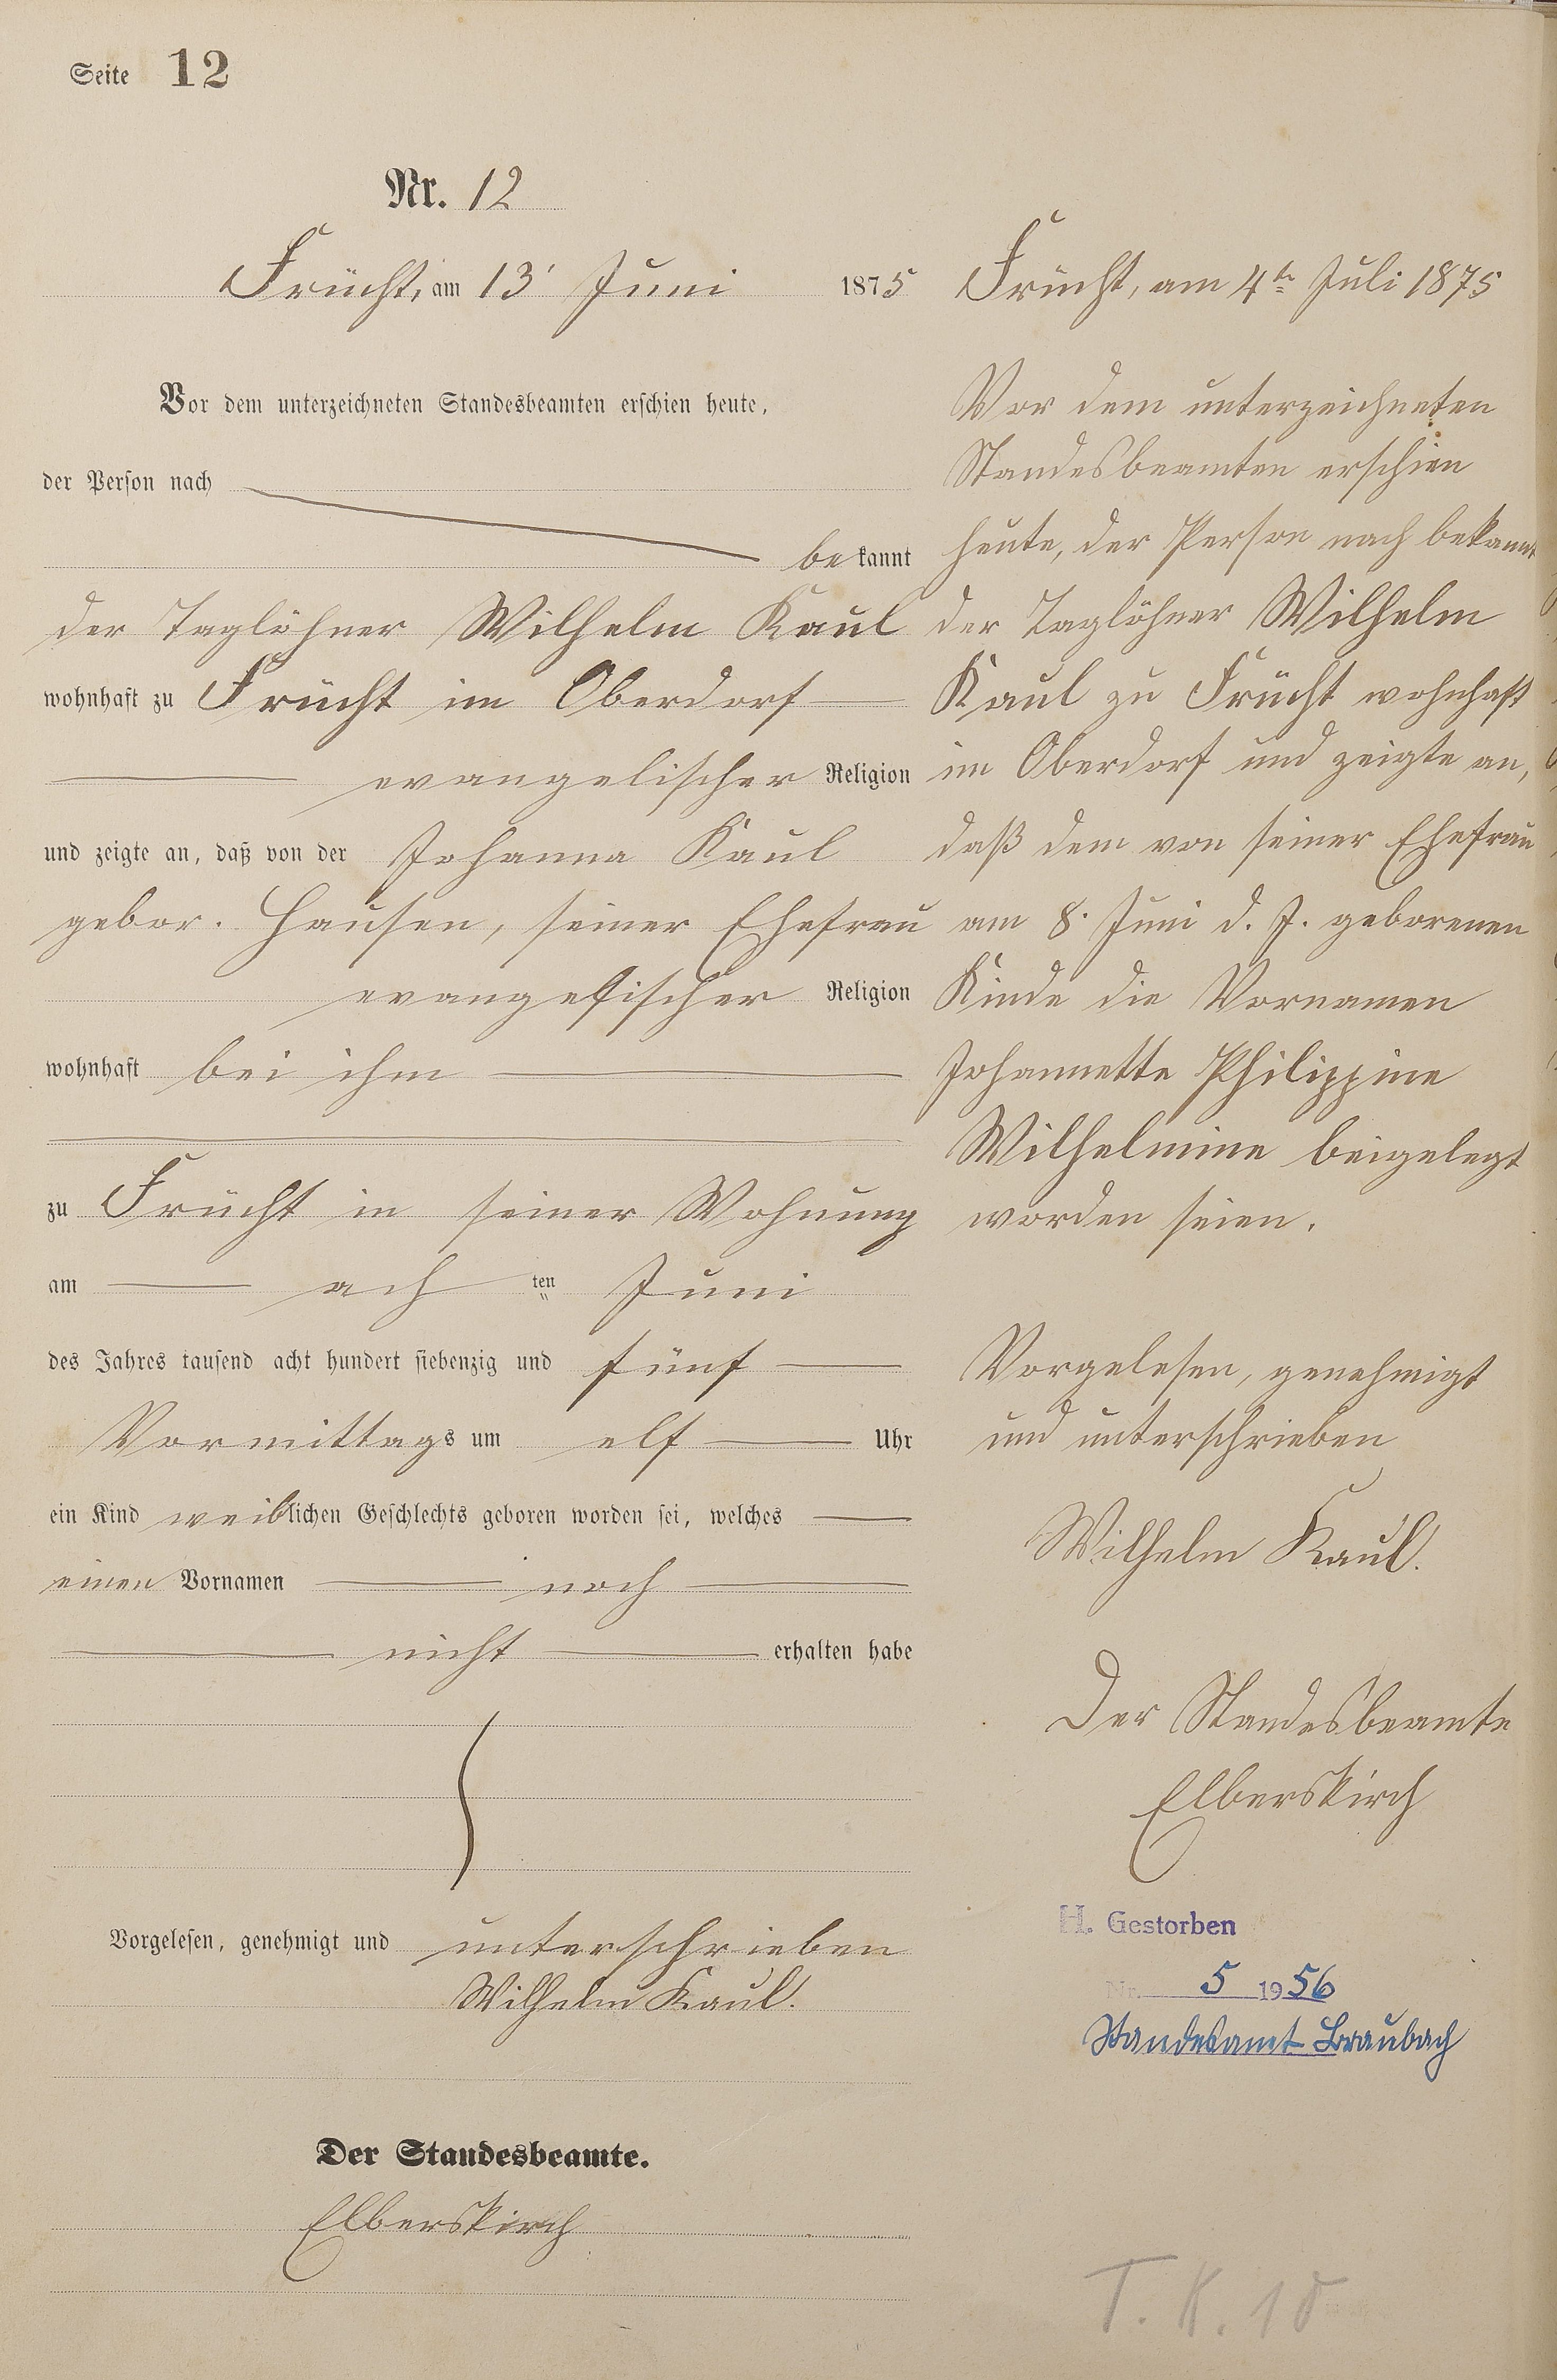 Seite 12
Nr. 12
Frücht, am 13' Juni 1875
Vor dem unterzeichneten Standesbeamten erschien heute,
der Person nach
bekannt
der Taglöhner Wilhelm Kaul
wohnhaft zu Frücht im Oberdorf
evangelischer Religion
und zeigte an, daß von der Johanna Kaul
gebor. Hausen, seiner Ehefrau
evangelischer Religion
wohnhaft bei ihm
zu Frücht in seiner Wohnung
am ach ten Juni
des Jahres tausend acht hundert siebenzig und fünf
Vormittags um elf Uhr
ein Kind weiblichen Geschlechts geboren worden sei, welches
einen Vornamen noch
nicht erhalten habe
Vorgelesen, genehmigt und unterschrieben
Wilhelm Kaul.
Der Standesbeamte.
Elberskirch
Frücht, am 4ten Juli 1875
Vor dem unterzeichneten
Standesbeamten erschien
heute, der Person nach bekannt
der Taglöhner Wilhelm
Kaul zu Frücht wohnhaft
im Oberdorf und zeigte an,
daß dem von seiner Ehefrau
am 8. Juni d. J. geborenen
Kinde die Vornamen
Johannette Philippine
Wilhelmine beigelegt
worden seien.
Vorgelesen, genehmigt
und unterschrieben
Wilhelm Kaul.
Der Standesbeamte
Elberskirch
H. Gestorben
Nr. 5 1956
Standesamt Braubach
T. K. 10